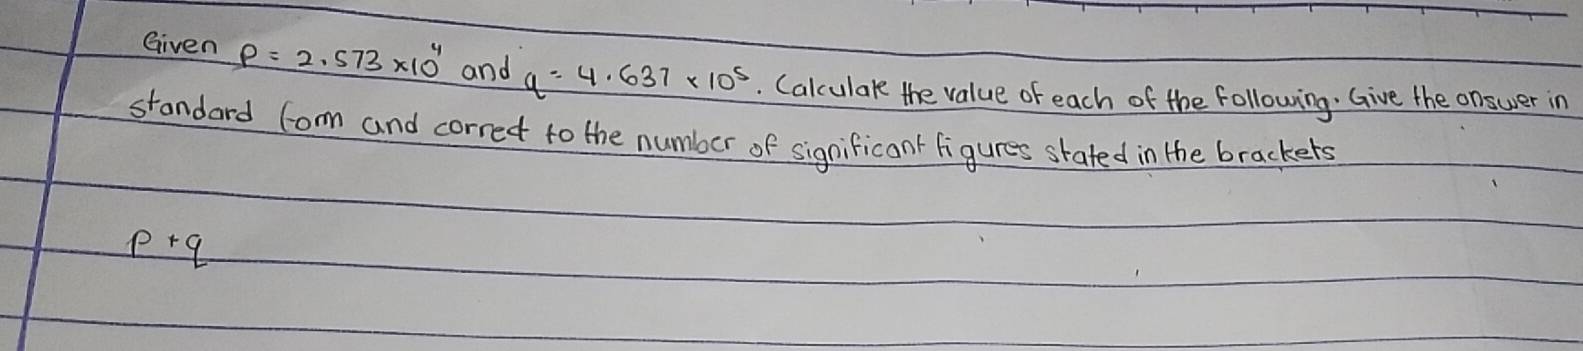 Given p = 2.573 × 10⁴ and q = 4.637 × 10⁵. Calculate the value of each of the following. Give the answer in
standard form and correct to the number of significant figures stated in the brackets
p + q